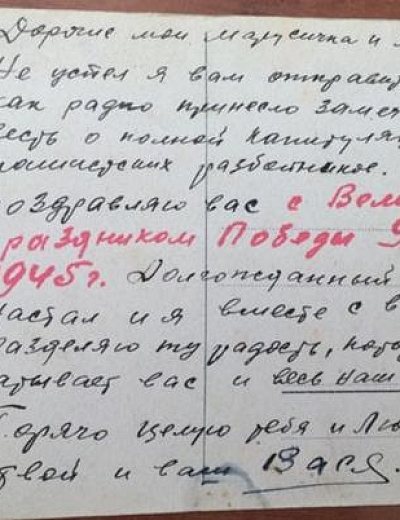 Дорогие мои Марусичка и Л
Не успел я вам отправит
как радио принесло замеч
весть о полной капитуля
фашистских разбойников.
оздравляю вас с Вели
раздником Победы 9
945г. Долгожданный
настал и я вместе с в
разделяю ту радость, кото
атывает вас и весь наш
Горячо целую тебя и Лю
твой и ваш Вася.